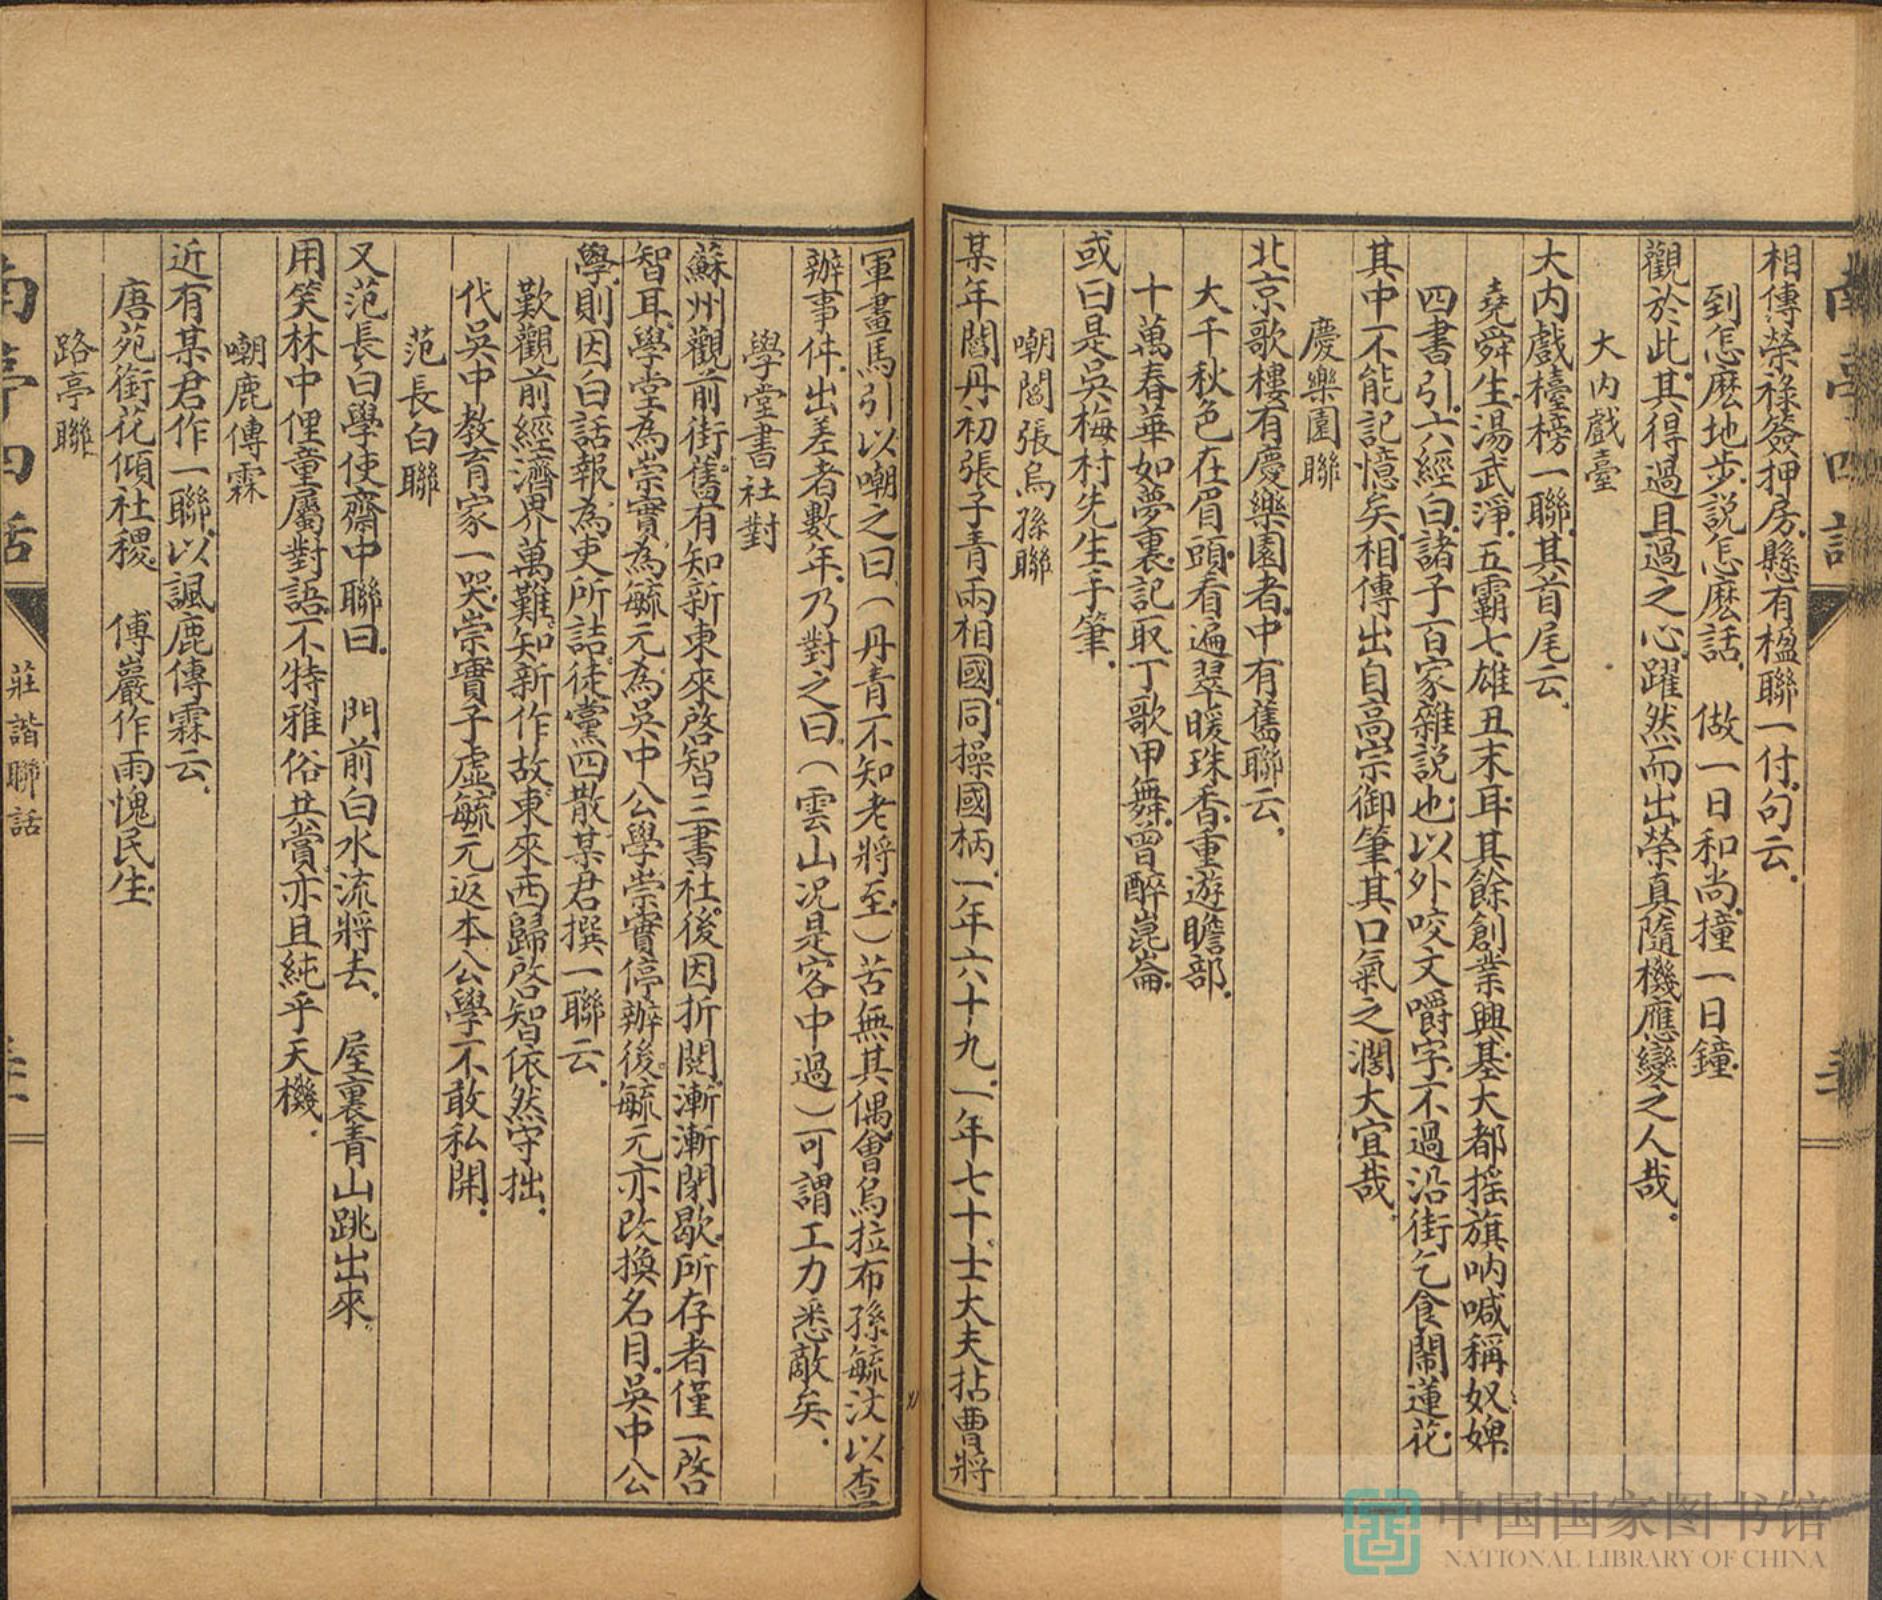 相傳榮祿簽押房懸有楹聯一付句云
到怎麽地步說怎麽話　做一日和尚撞一日鐘
觀於此其得過且過之心躍然而出榮真隨機應變之人哉
大內戲臺
大内戲檯榜一聯其首尾云
堯舜生湯武淨五霸七雄丑末耳其餘創業興基大都摇旗吶喊稱奴婢
四書引六經白諸子百家雜説也以外咬文嚼字不過沿街乞食鬧蓮花
其中不能記憶矣相傳出自高宗御筆其口氣之濶大宜哉
慶樂園聯
北京歌樓有慶樂園者中有舊聯云
大千秋色在眉頭看遍翠暖珠香重遊瞻部
十萬春華如夢裏記取丁歌甲舞曾醉崑崙
或曰是吳梅村先生手筆
嘲閻張烏孫聯
某年閻丹初張子青兩相國同操國柄一年六十九一年七十士大夫拈曹將
軍畫馬引以嘲之曰（丹青不知老將至）苦無其偶會烏拉布孫毓汶以查
辦事件出差者數年乃對之曰（雲山况是客中過）可謂工力悉敵矣
學堂書社對
蘇州觀前街舊有知新東來啓智三書社後因折閱漸漸閉歇所存者僅一啓
智耳學堂為崇實為毓元為吳中公學崇實停辦後毓元亦改換名目吳中公
學則因白話報為吏所詰徒黨四散某君撰一聯云
歎觀前經濟界萬難知新作故東來西歸啓智依然守拙
代吳中教育家一哭崇實子虛毓元返本公學不敢私開
范長白聯
又范長白學使齋中聯曰　門前白水流將去　屋裏青山跳出來
用笑林中俚童屬對語不特雅俗共賞亦且純乎天機
嘲鹿傳霖
近有某君作一聯以諷鹿傳霖云
唐苑銜花傾社稷　傅巖作雨愧民生
路亭聯
南亭四話
莊諧聯話
中国国家图书馆
NATIONAL LIBRARY OF CHINA